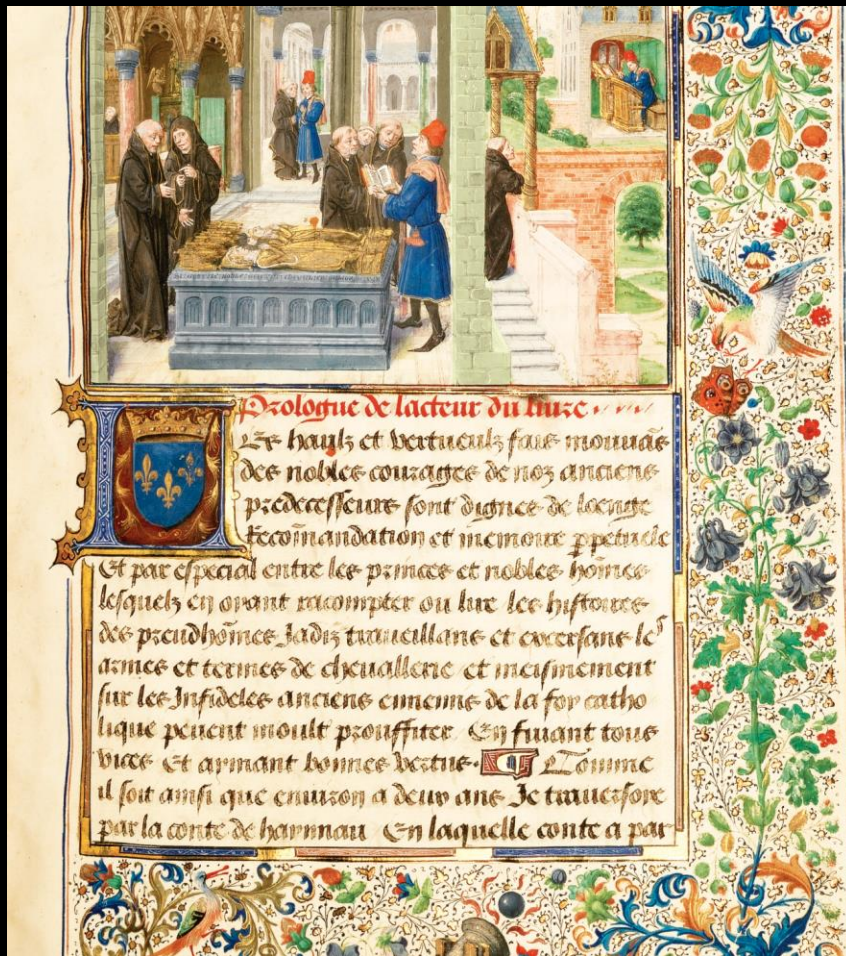 Prologue de lacteur du liure
Les haulz et vertueulz fais mouuās
des nobles courages de noz anciens
predecesseurs sont dignes de loenge
Recōmandation et memoire ppetuele
Et par especial entre les princes et nobles hōmes
lesquelz en oyant racompter ou lire les histoires
des preudhōmes Jadiz traueillans et excersans les
armes et termes de cheuallerie et meismement
sur les Infideles anciens ennemis de la foy catho
lique peuent moult prouffiter En fuiant tous
vices Et aymant bonnes vertus. Comme
il soit ainsi que enuiron a deux ans Je trauersoie
par la conte de haynnau En laquelle conte a par